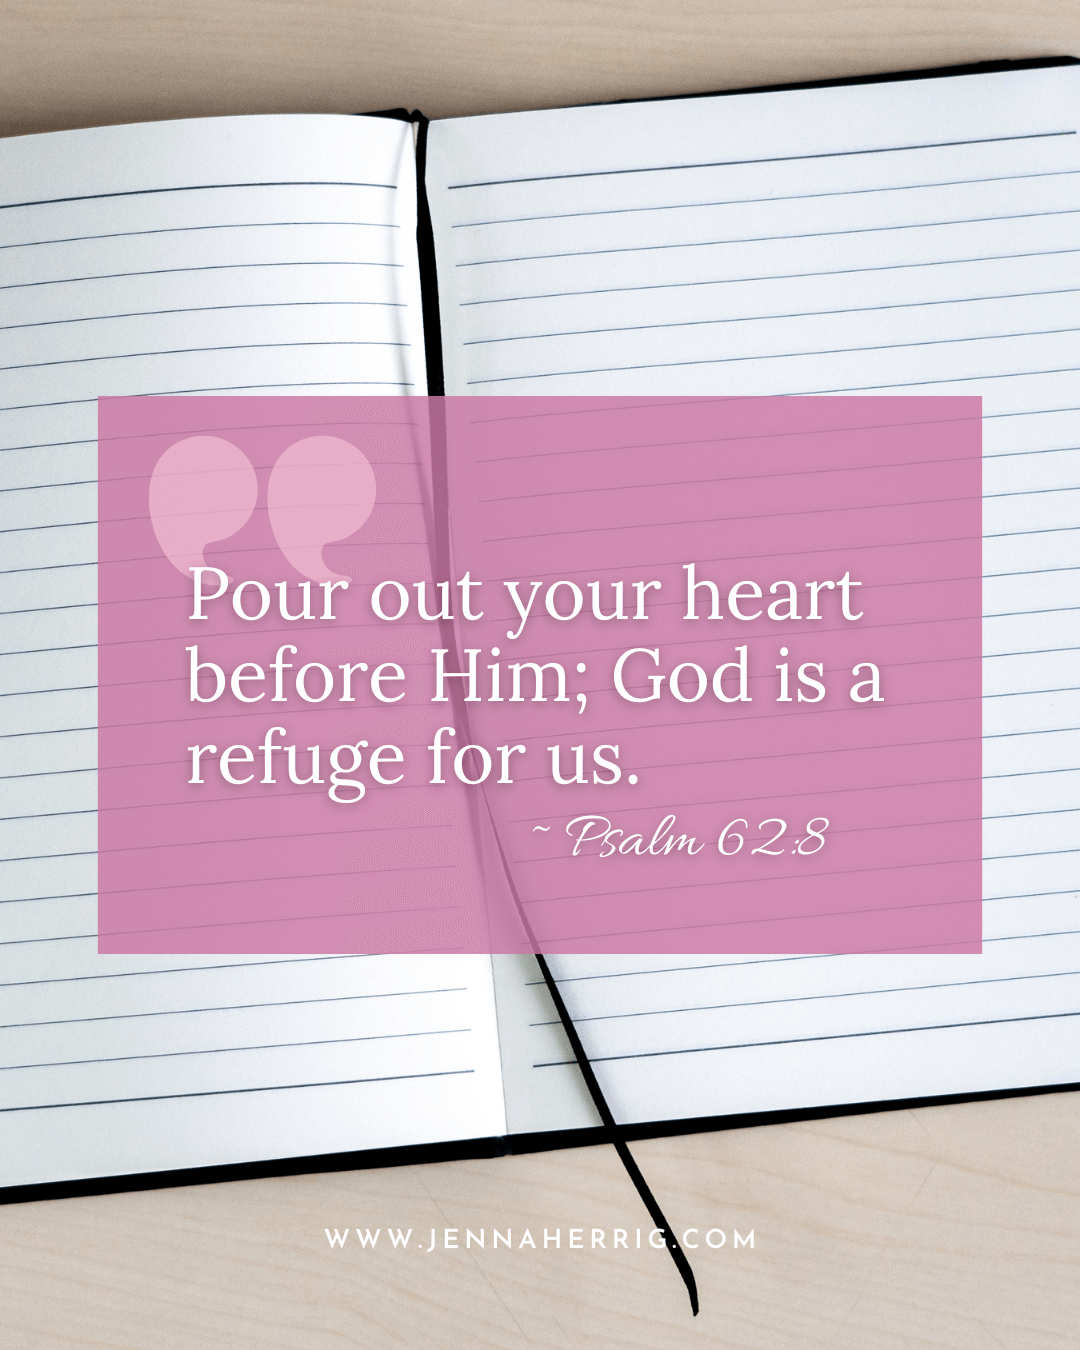 Pour out your heart
before Him; God is a
refuge for us.
~ Psalm 62:8
WWW.JENNAHERRIG.COM